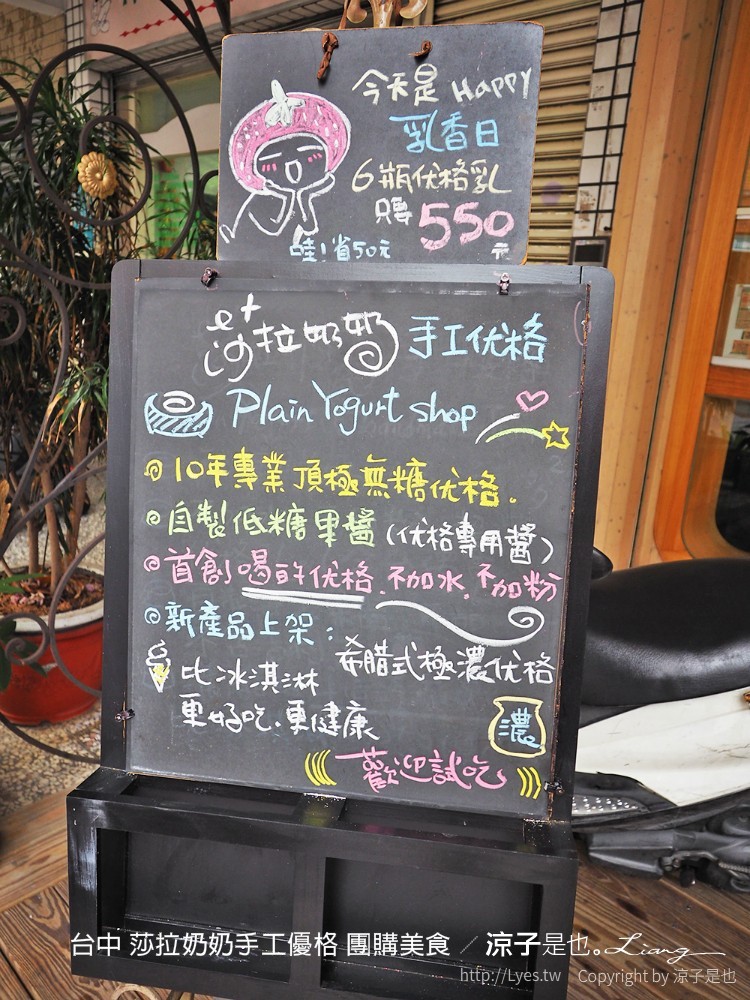 今天是 Happy
乳香日
6瓶优格乳
只要550元
哇!省50元
莎拉奶奶 手工优格
Plain Yogurt shop
10年專業頂極無糖优格.
自製低糖果醬(优格專用醬)
首創喝的优格.不加水.不加粉
新產品上架:
希腊式極濃优格
比冰淇淋
更好吃.更健康
濃
歡迎試吃
台中 莎拉奶奶手工優格 團購美食 ／ 涼子是也。Liang
http://Lyes.tw Copyright by 涼子是也